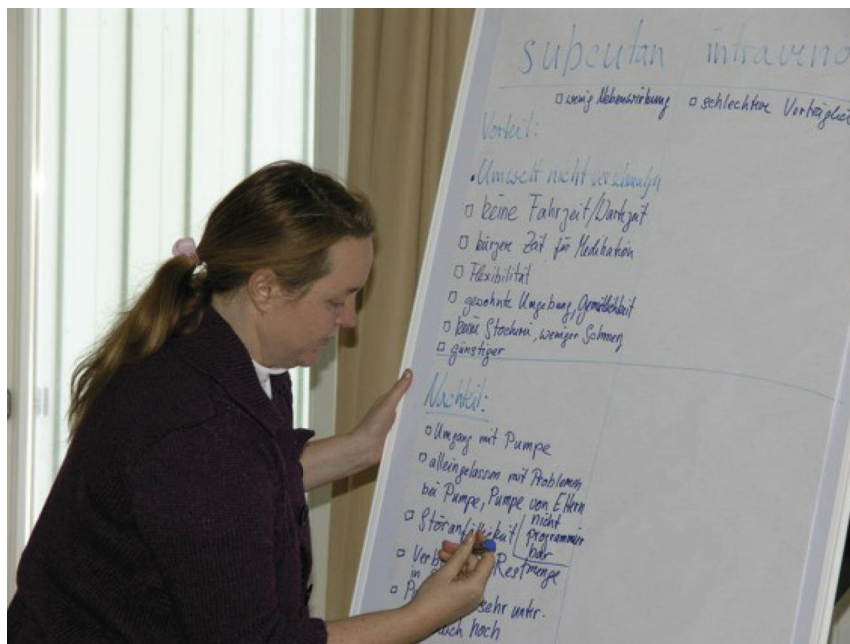 subcutan intraveno
□ wenig Nebenwirkung □ schlechtere Verträglich
Vorteil:
• Umwelt nicht verschmutzen
□ keine Fahrzeit/Wartezeit
□ kürzere Zeit für Medikation
□ Flexibilität
□ gewohnte Umgebung, Gemütlichkeit
□ kein Stochern, weniger Schmerz
□ günstiger
Nachteil:
□ Umgang mit Pumpe
□ alleingelassen mit Problemen
bei Pumpe, Pumpe von Eltern
nicht
□ Störanfälligkeit programmier
bar
□ Restmenge
in
□ sehr unter.
hoch